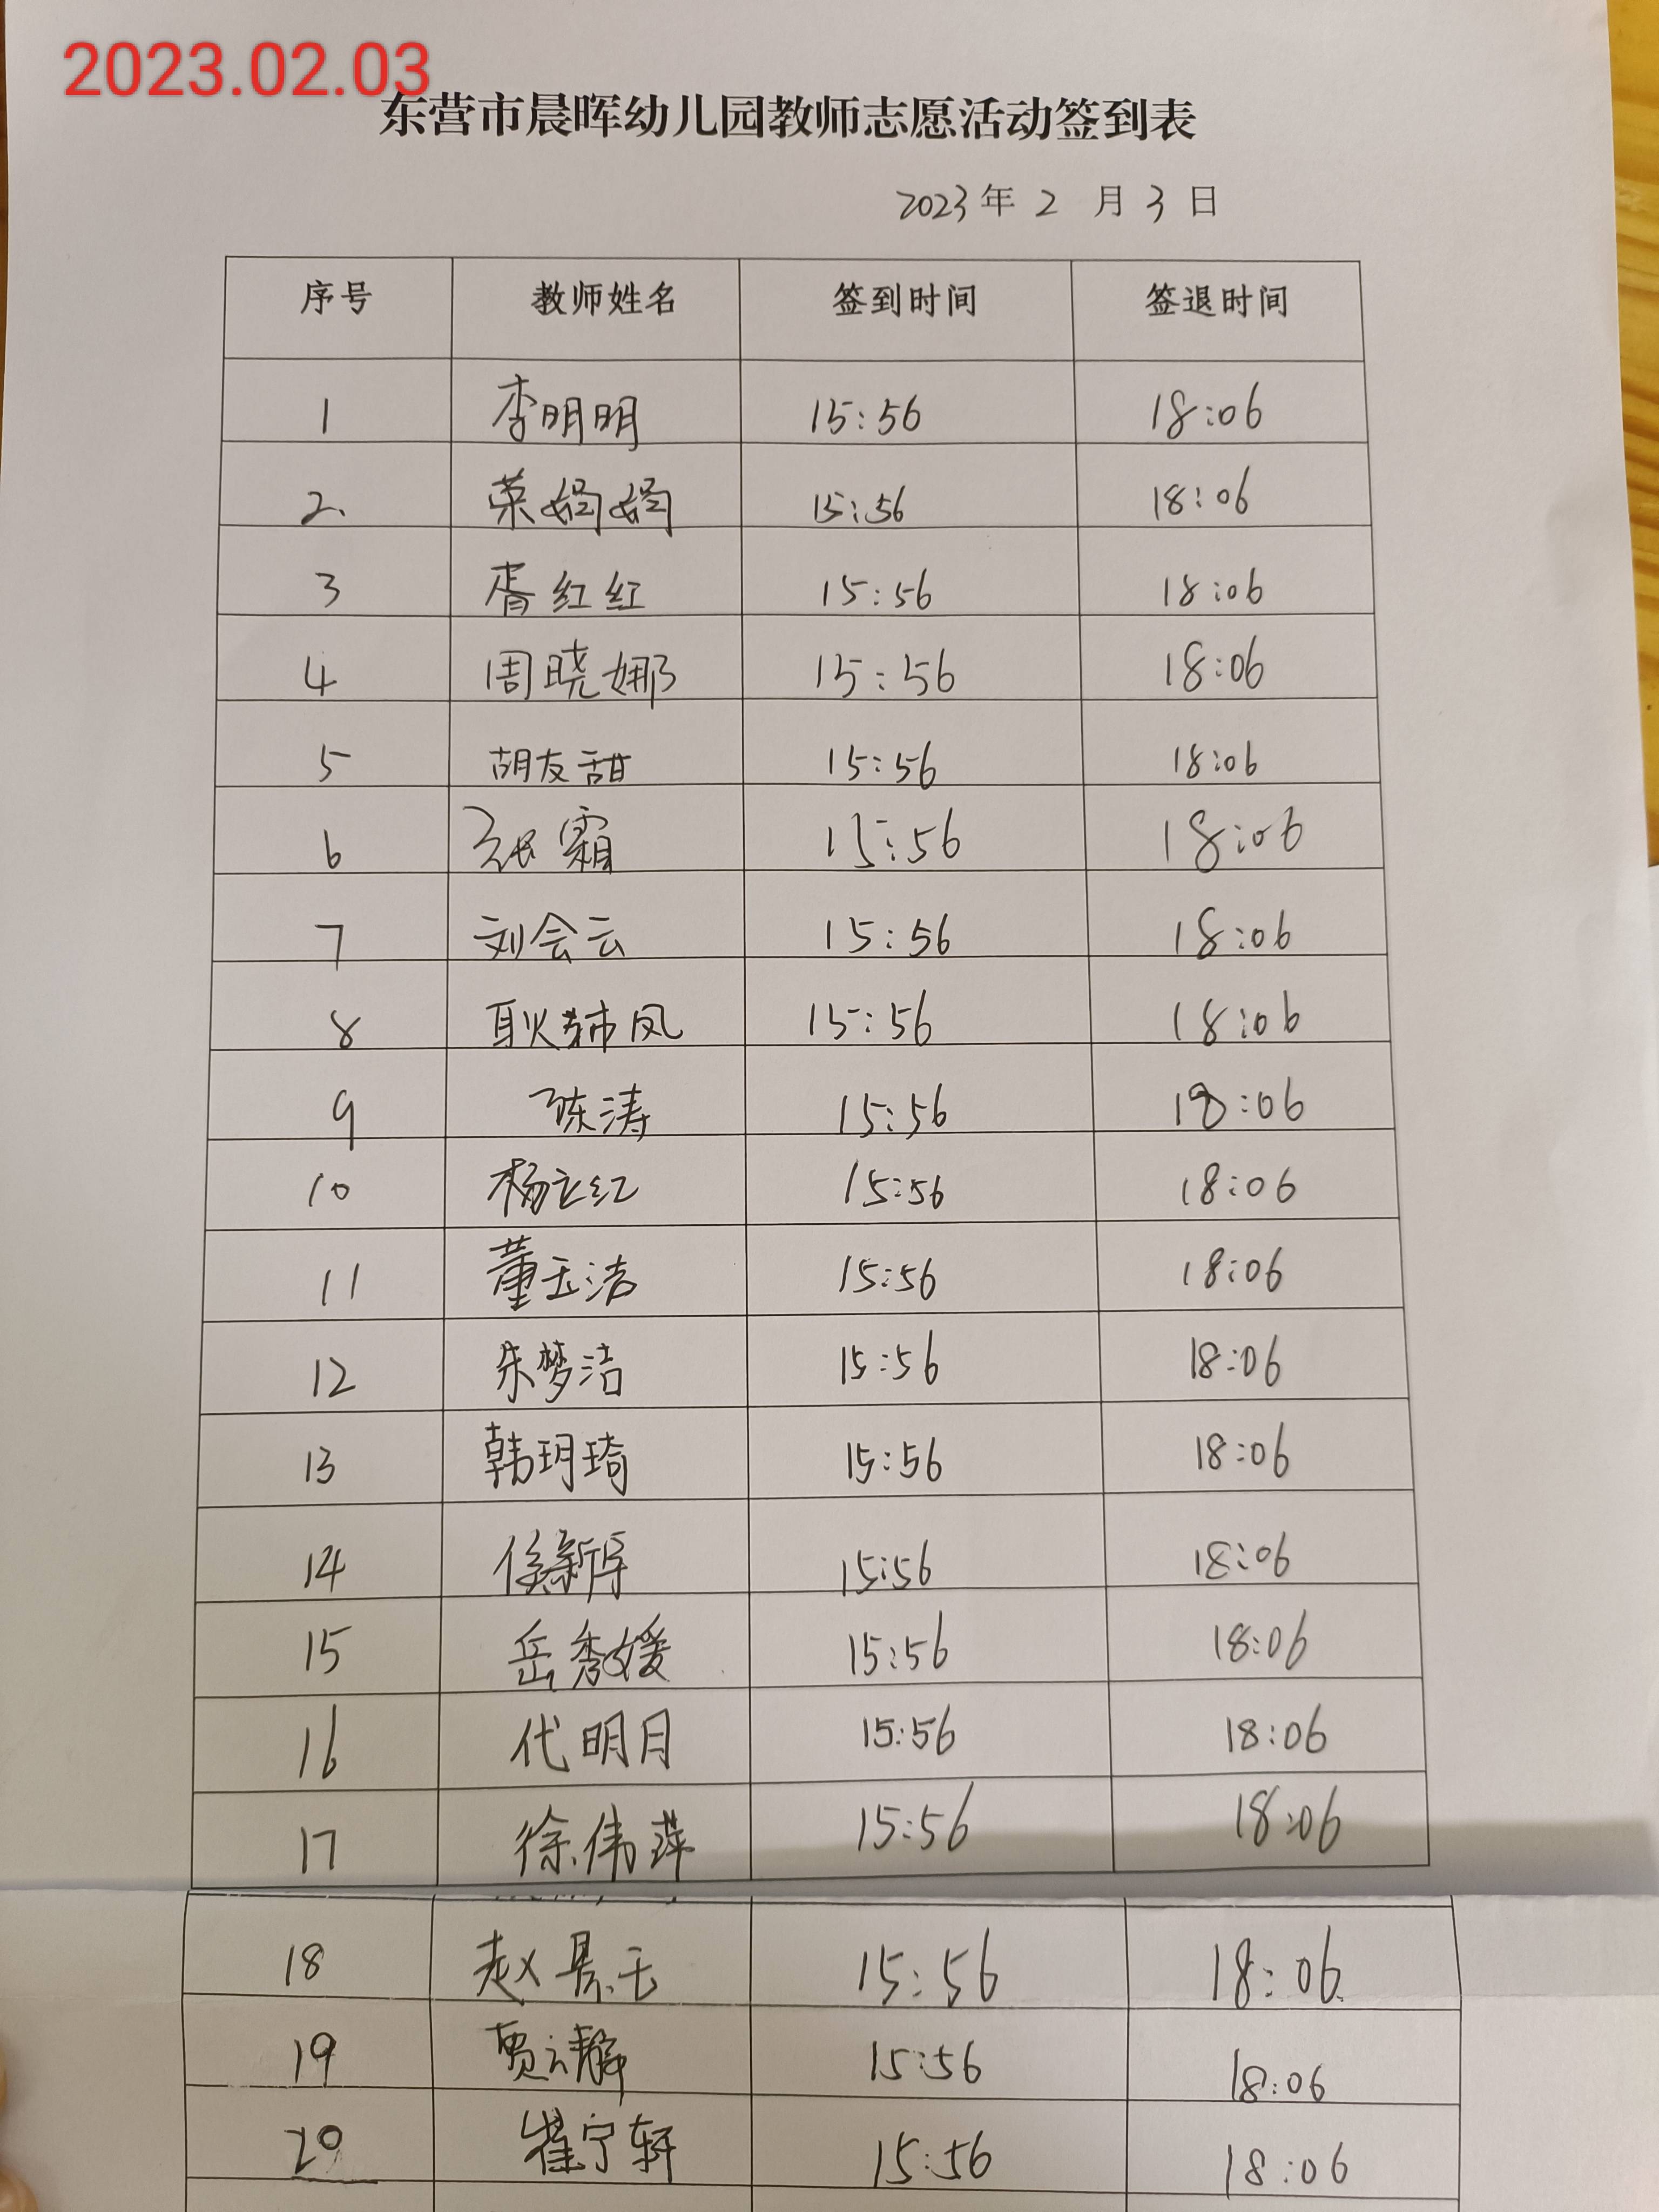 2023.02.03
东营市晨晖幼儿园教师志愿活动签到表
2023年 2 月 3 日
序号 教师姓名 签到时间 签退时间
1 李明明 15:56 18:06
2. 荣娟娟 15:56 18:06
3 胥红红 15:56 18:06
4 周晓娜 15:56 18:06
5 胡友甜 15:56 18:06
6 张霜 15:56 18:06
7 刘会云 15:56 18:06
8 耿凤 15:56 18:06
9 陈涛 15:56 18:06
10 杨立红 15:56 18:06
11 董玉洁 15:56 18:06
12 朱梦洁 15:56 18:06
13 韩玥琦 15:56 18:06
14 侯新 15:56 18:06
15 岳秀媛 15:56 18:06
16 代明月 15:56 18:06
17 徐伟萍 15:56 18:06
18 赵景玉 15:56 18:06
19 贾云静 15:56 18:06
20 崔宁轩 15:56 18:06